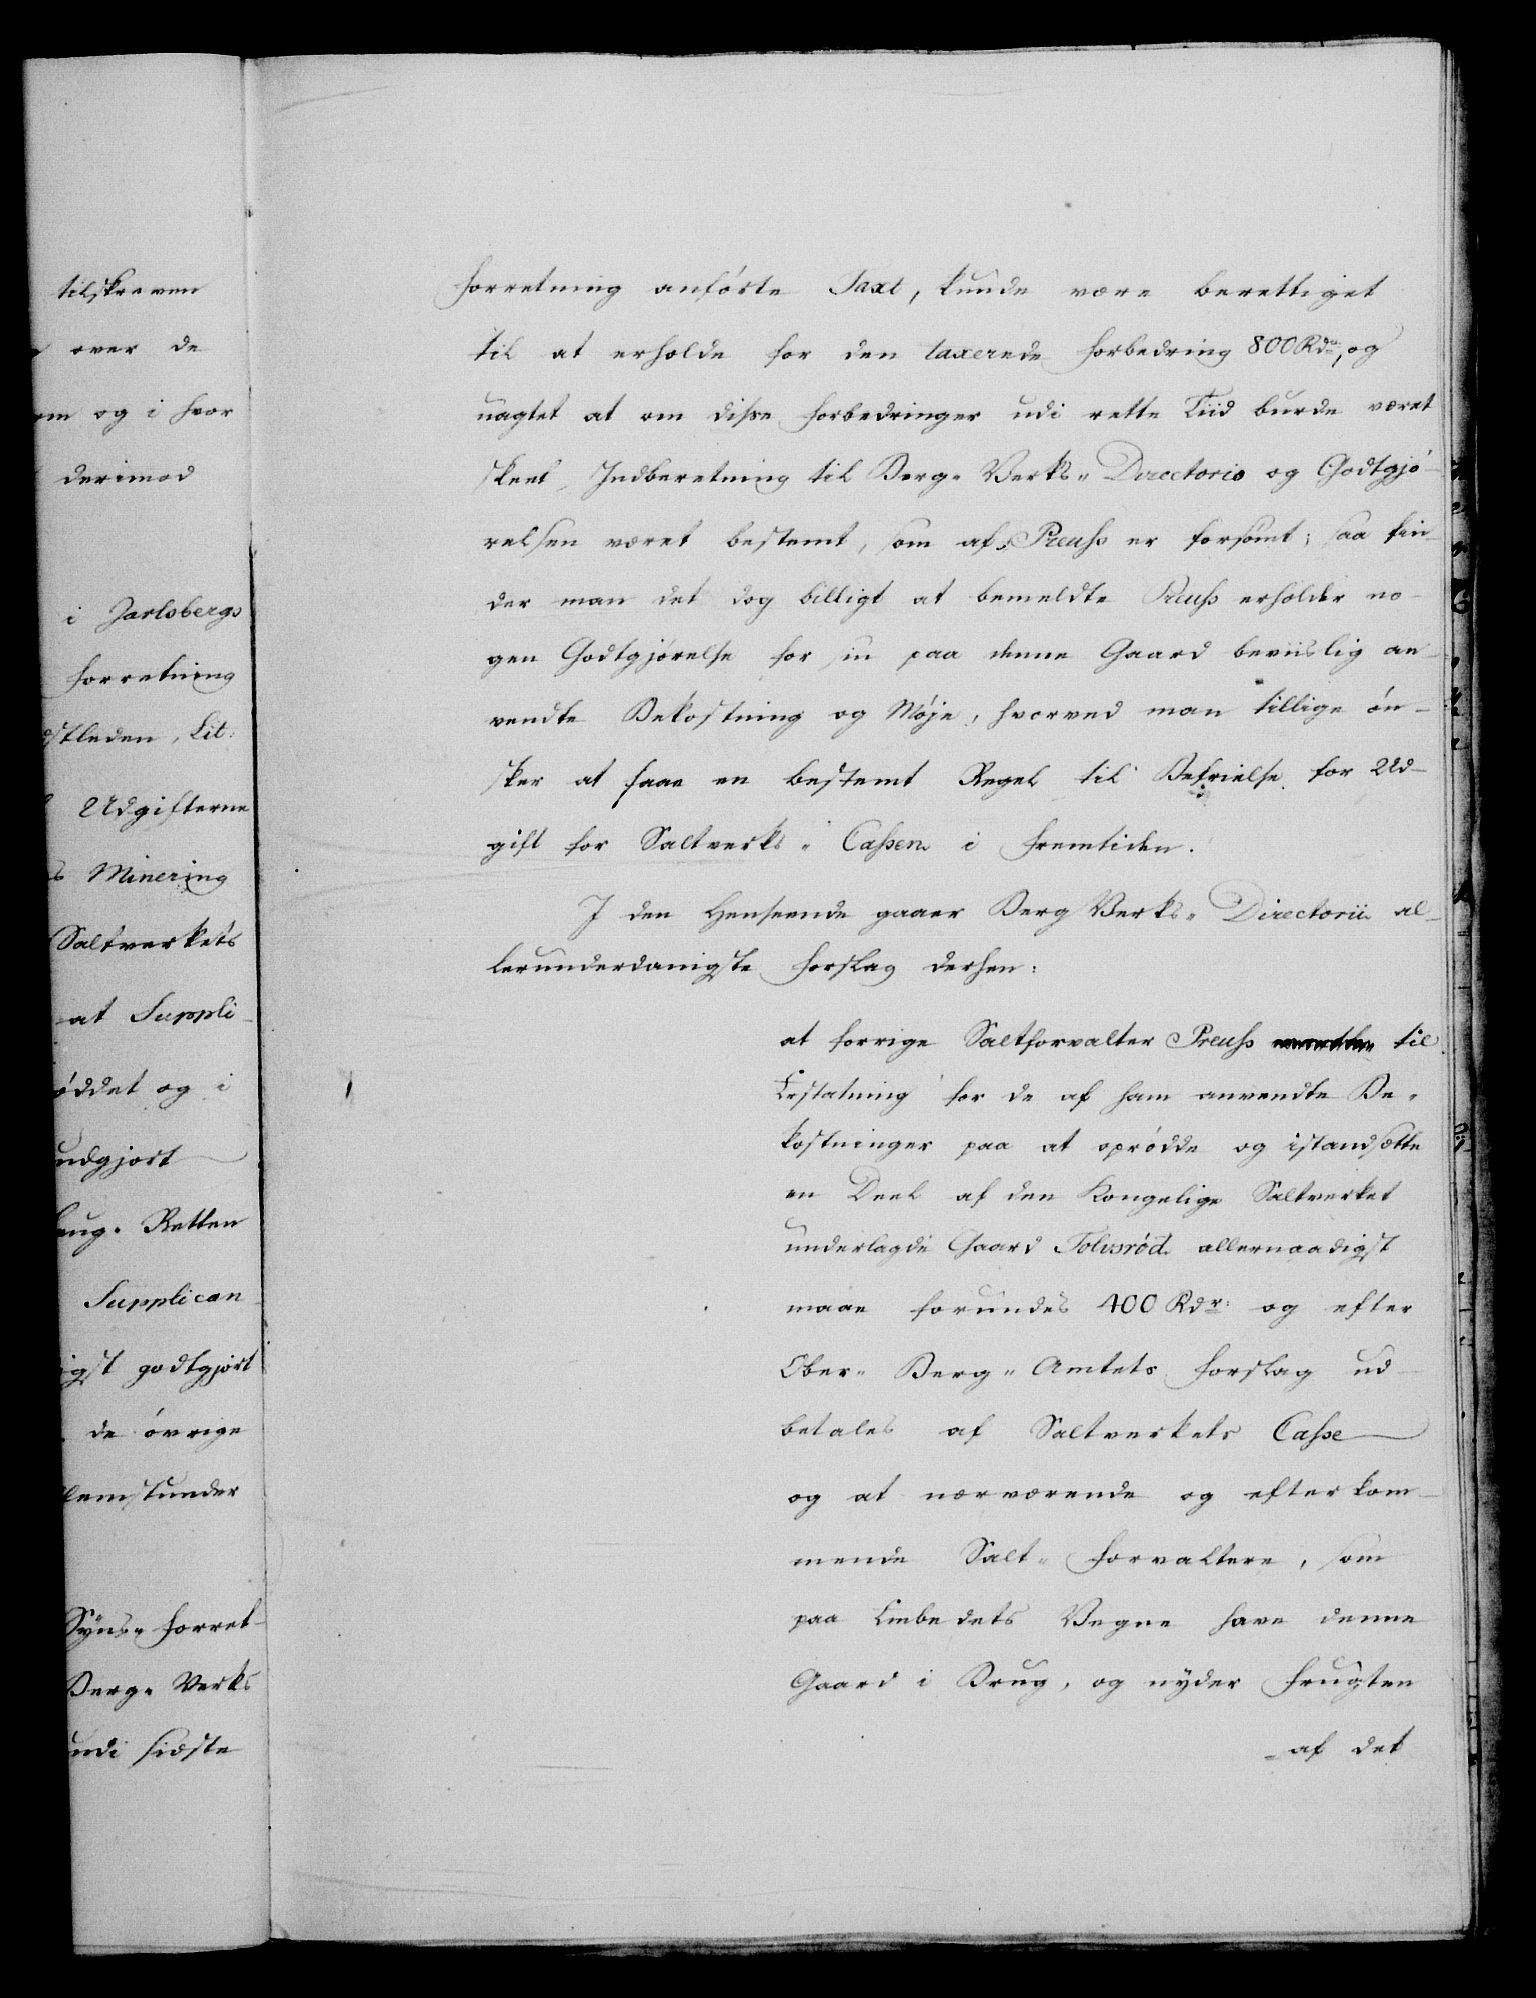 tilskreven
over de
om og i hvor
derimod
i Jarlsbergs
forretning
Lit:
Udgifterne
Minering
Saltverkets
at Suppli-
øddet og i
udgjort
Retten
Supplican
igst godtgjort
de øvrige
lemstunder
Syns- forret-
Berg- Verks
udi sidste
forretning anførte Taxt, kunde være berettiget
til at erholde for den taxerede forbedring 800 Rdr, og
uagtet at om disse forbedringer udi rette Tiid burde været
skeet Indberetning til Berg- Verks- Directoris og Godtgjø-
relsen været bestemt, som af Preuss er forsømt; saa fin-
der man det dog billigt at bemeldte Preuss erholder no-
gen Godtgjørelse for sin paa denne Gaard beviislig an-
vendte Bekostning og Møje, hvorved man tillige øn-
sker at faae en bestemt Regel til Befrielse for Ud-
gift for Saltverks- Cassen i fremtiden.
I den Henseende gaaer Berg Verks- Directorii al-
lerunderdanigste forslag derhen:
at forrige Saltforvalter Preuss til
Erstatning for de af ham anvendte Be-
kostninger paa at oprødde og istandsætte
en Deel af den Kongelige Saltverket
underlagde Gaard Tolvsrød allernaadigst
maae forundes 400 Rdr: og efter
Ober- Berg- Amtets forslag ud-
betales af Saltverkets Casse
og at nærværende og efterkom-
mende Salt- forvaltere, som
paa Embedets Vegne have denne
Gaard i Brug, og nyder frugten
af det